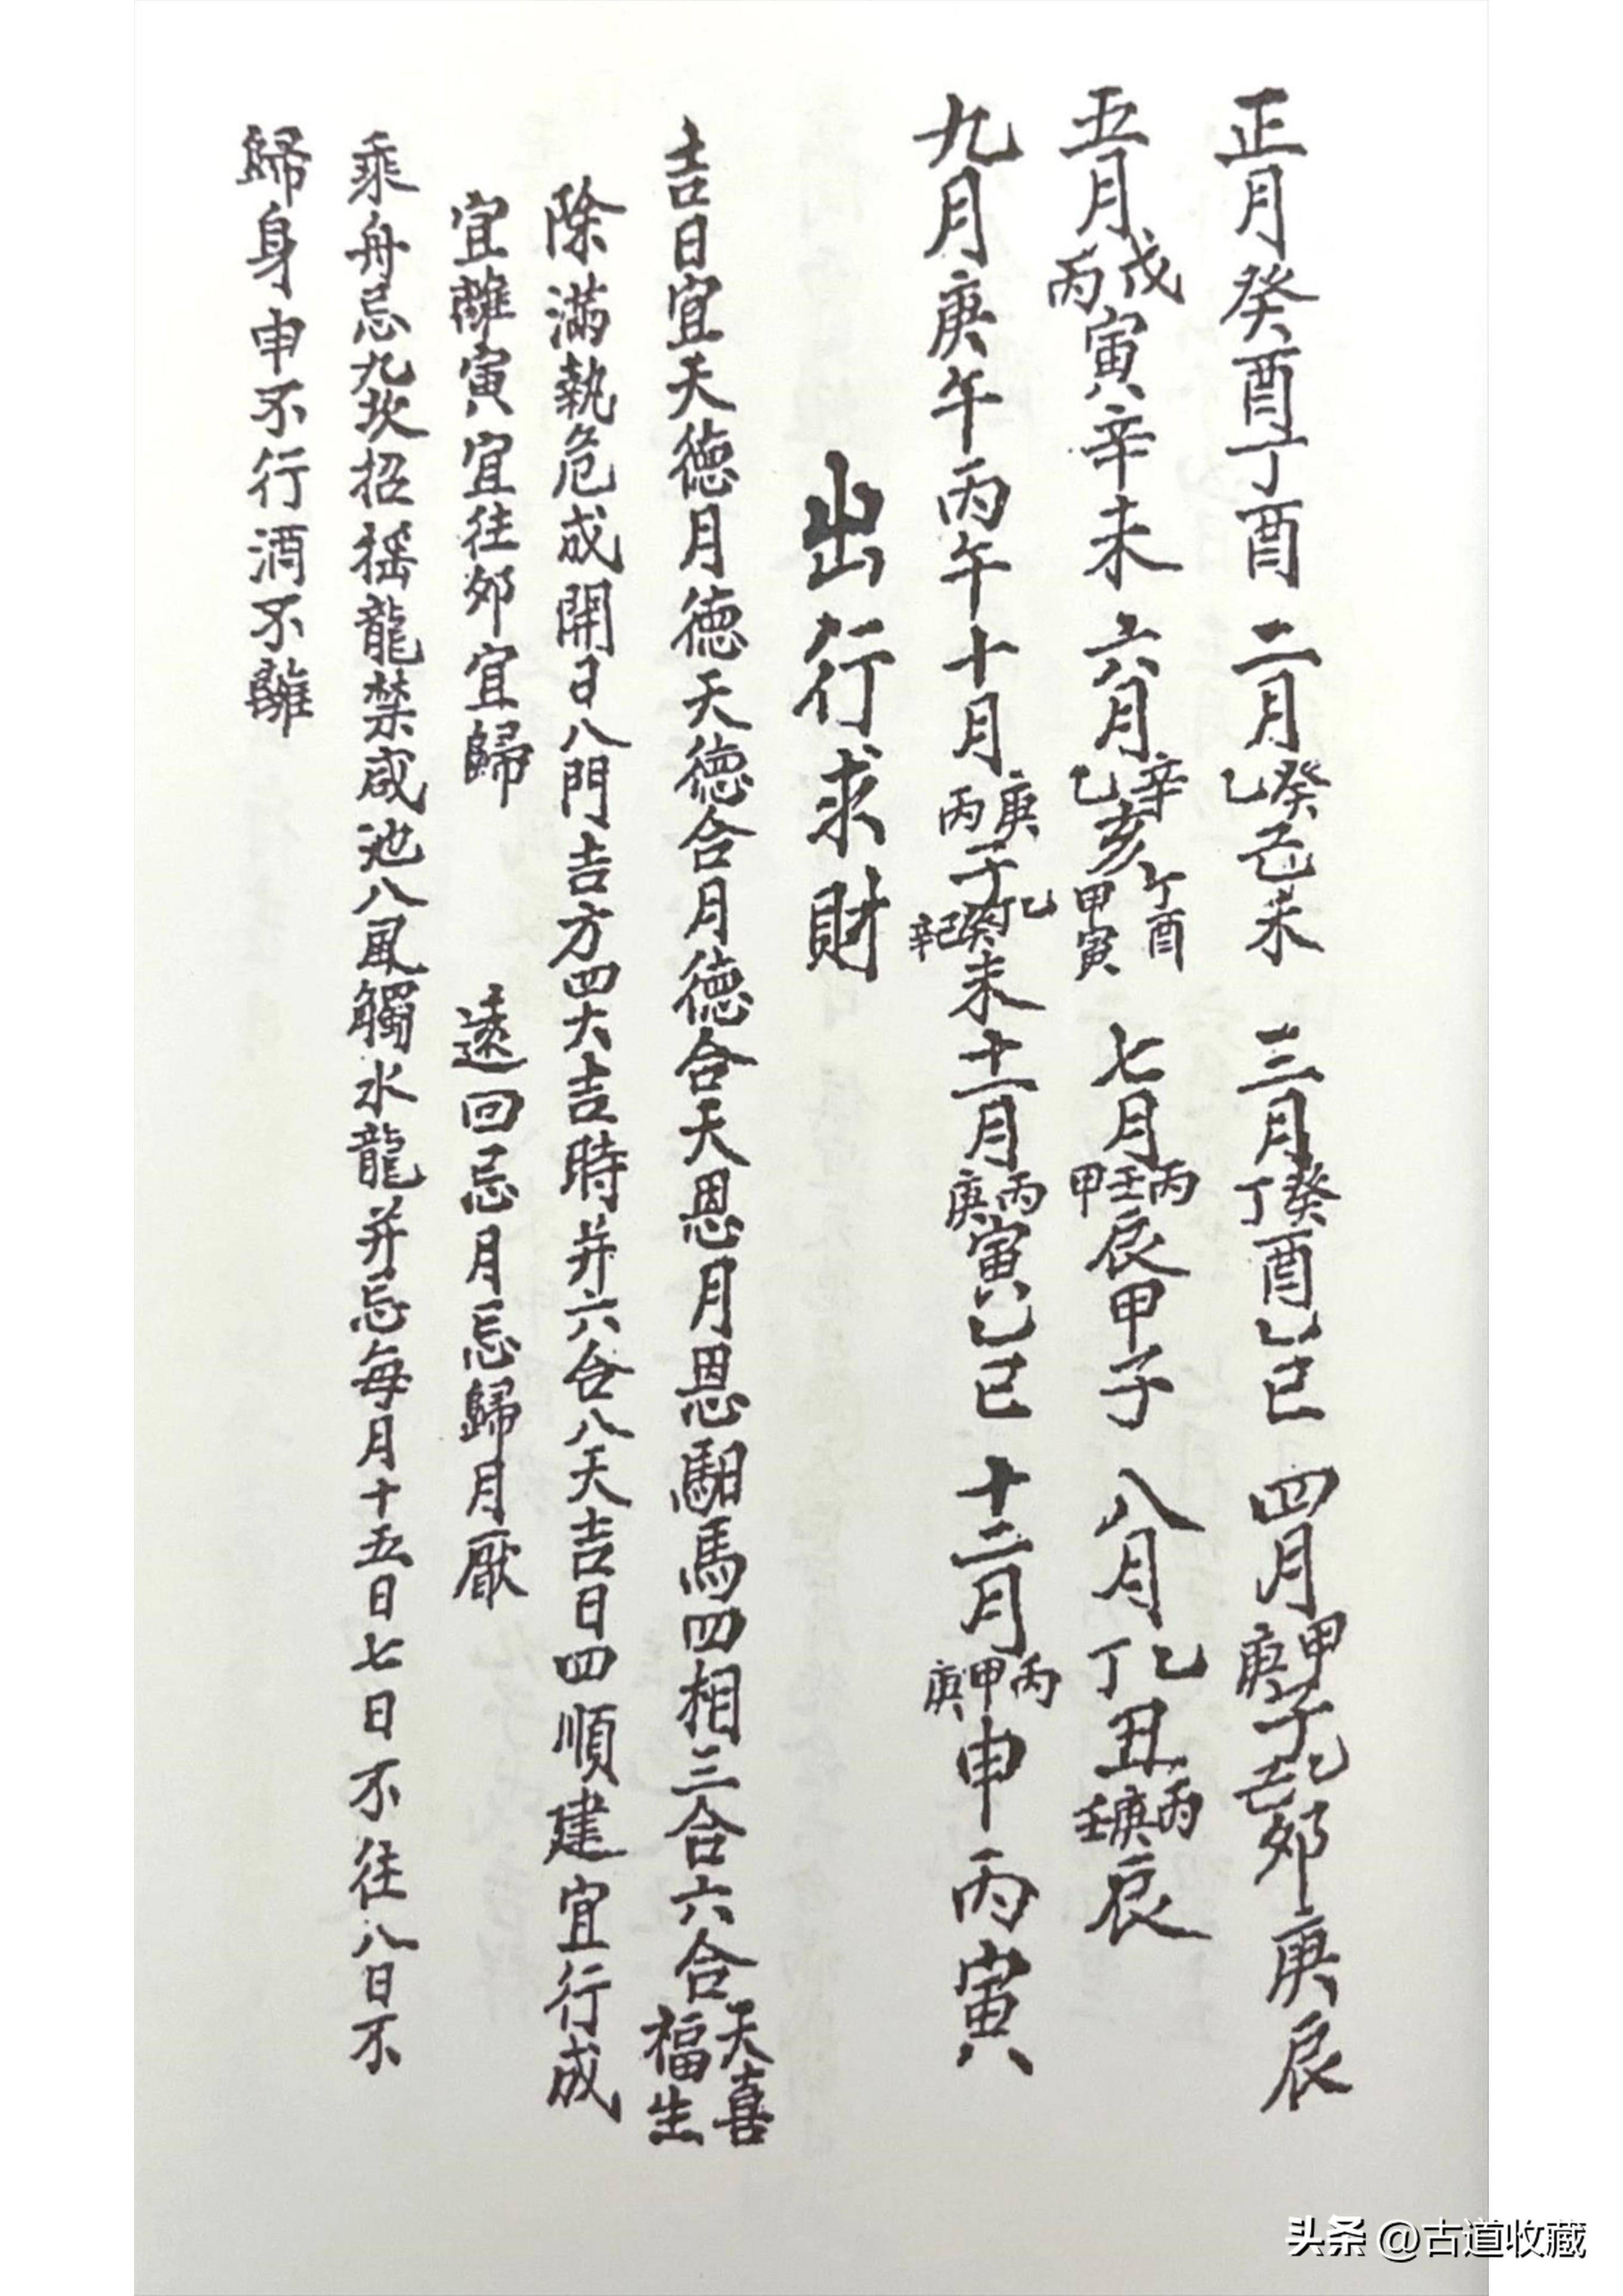 正月癸酉丁酉 二月癸乙己未 三月癸丁酉乙巳 四月甲庚子乙郊庚辰
五月戊丙寅辛未 六月辛乙亥酉甲寅 七月丙壬甲辰甲子 八月乙丁丑丙庚壬辰
九月庚午丙午十月庚丙子乙未十一月丙庚寅乙巳 十二月丙甲庚申丙寅
出行求財
吉日宜天德月德天德合月德合天恩月恩馹馬四相三合六合天喜福生
除滿執危成開日八門吉方四大吉時并六合八天吉日四順建宜行成
宜離寅宜往郊宜歸 遠回忌月忌歸月厭
乘舟忌九坎招搖龍禁咸池八風觸水龍并忌每月十五日七日不往八日不
歸身申不行酒不離
头条 @古道收藏